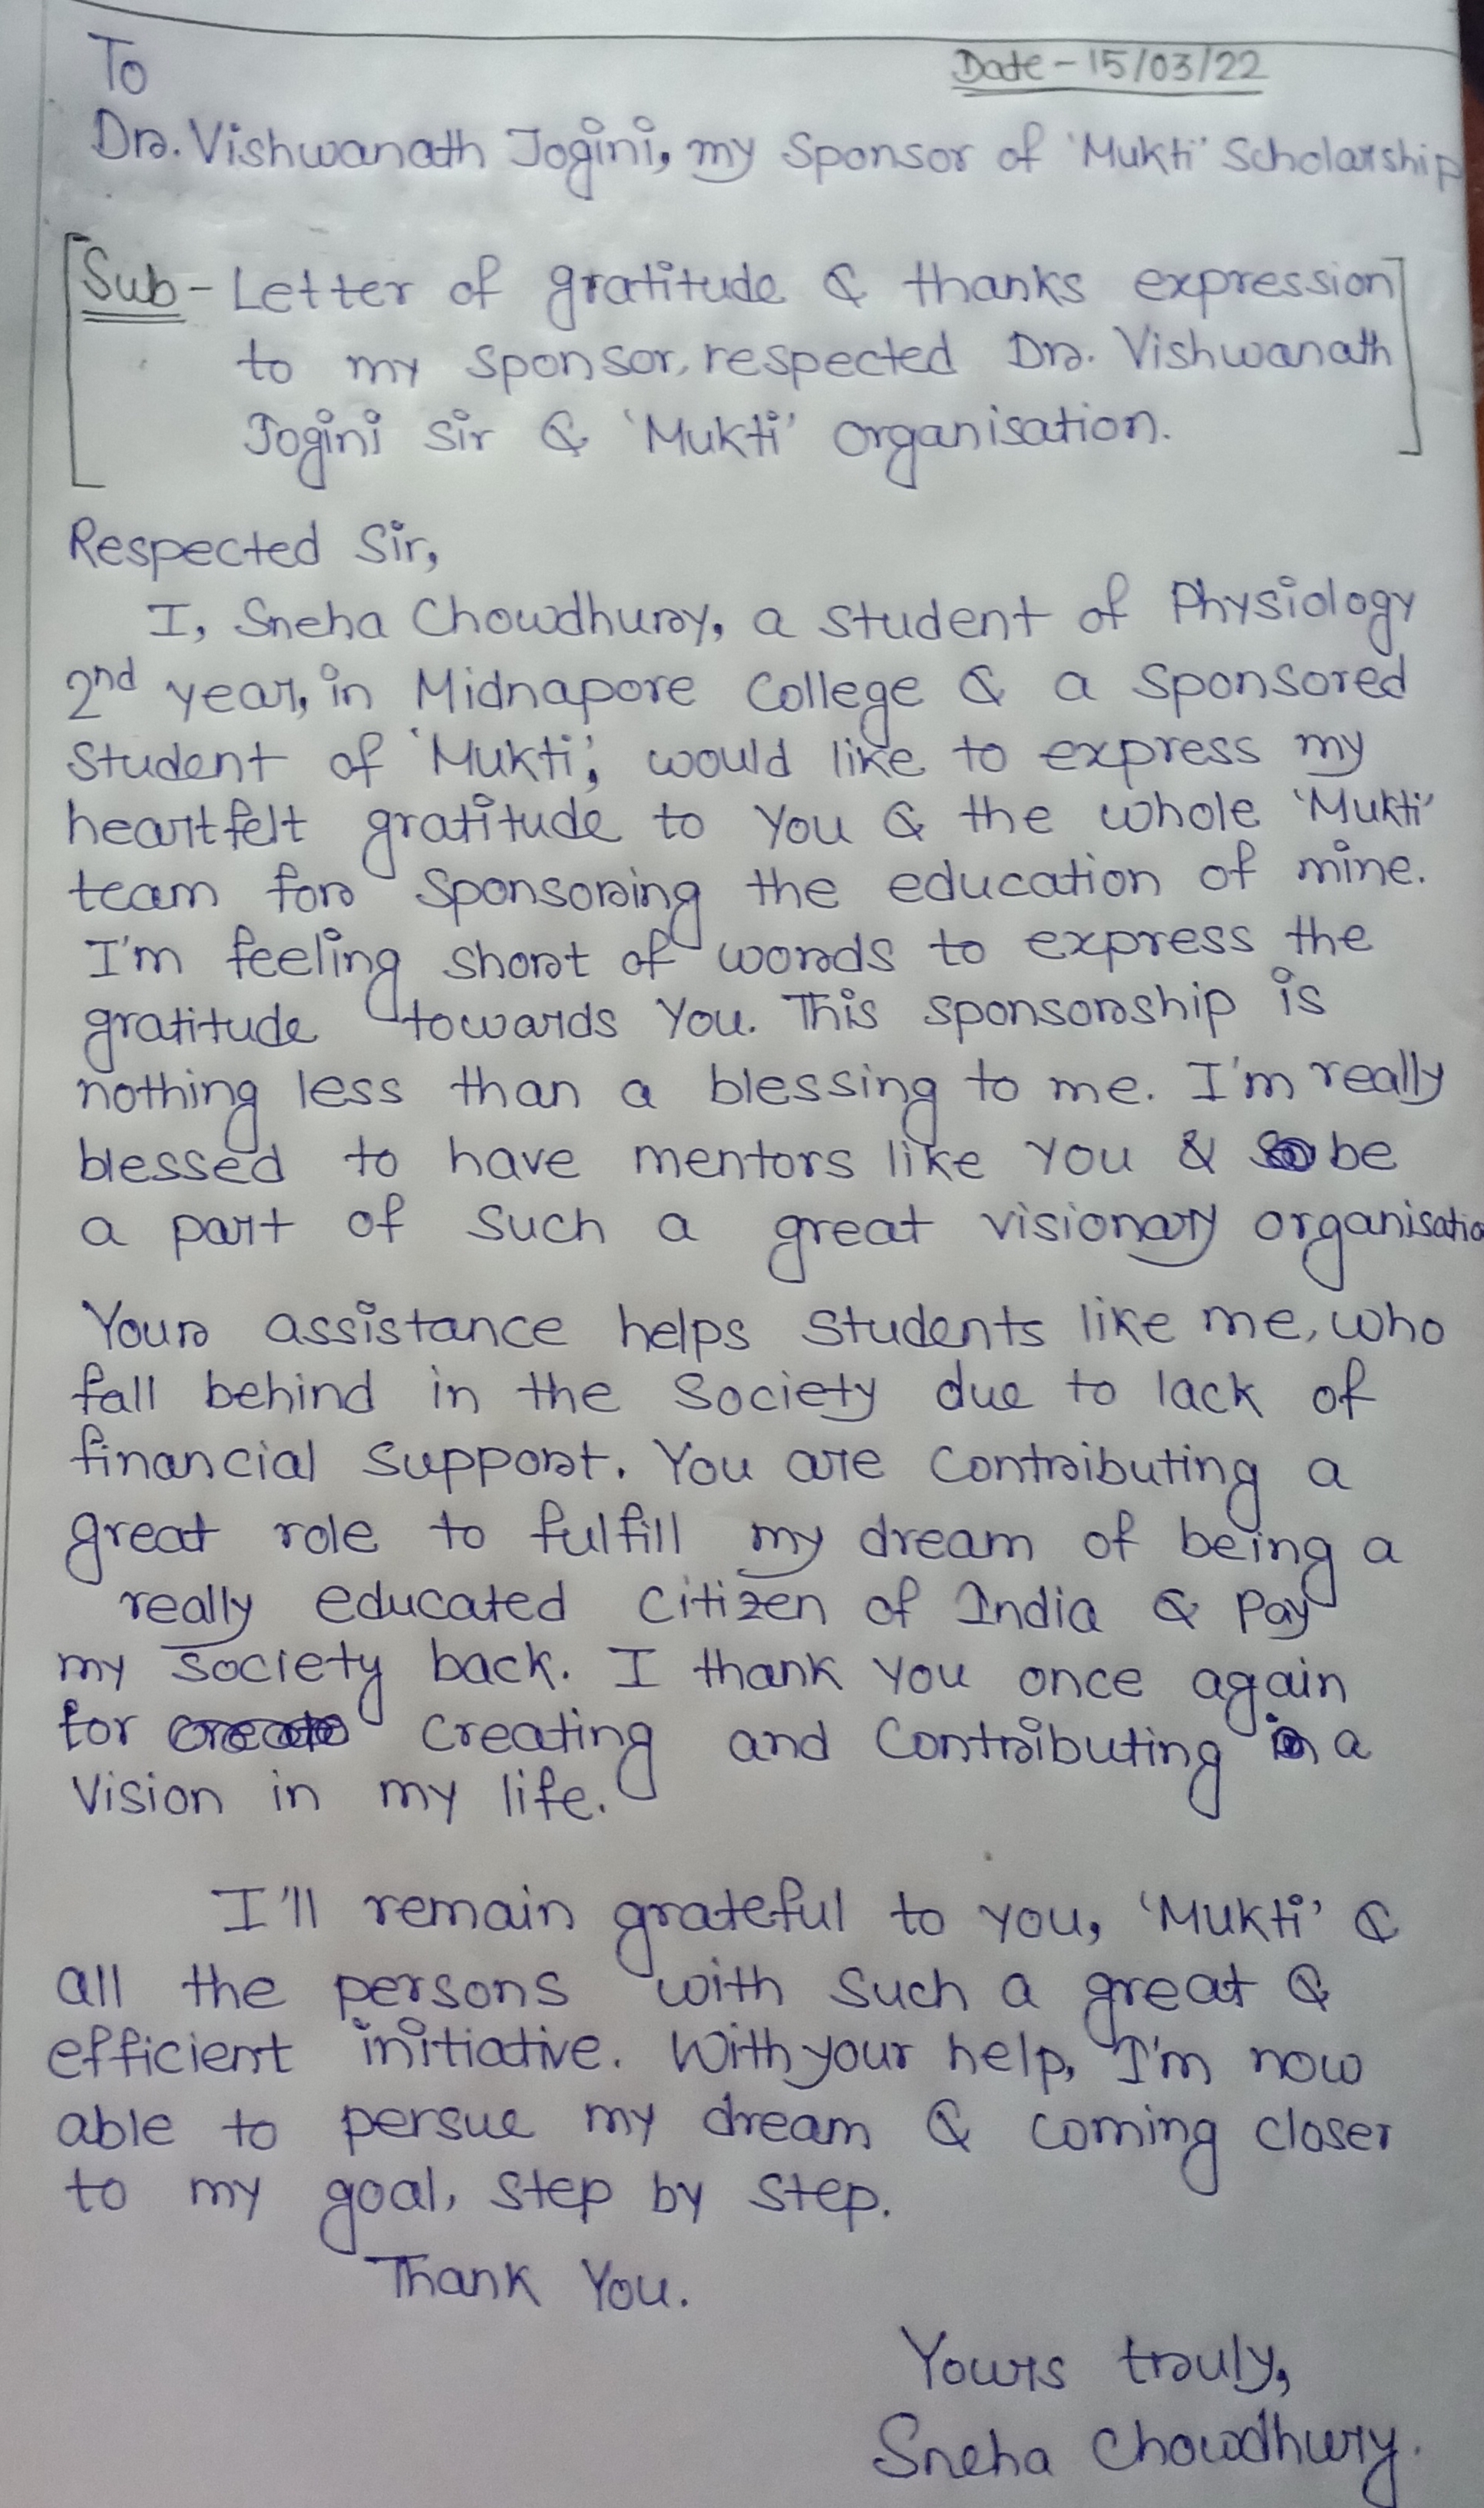 To
Date - 15/03/22
Dr. Vishwanath Jogini, my Sponsor of 'Mukti' Scholarship
[Sub - Letter of gratitude & thanks expression
to my sponsor, respected Dr. Vishwanath
Jogini Sir & 'Mukti' organisation.]
Respected Sir,
I, Sneha Chowdhury, a student of Physiology
2nd year, in Midnapore College & a sponsored
student of 'Mukti', would like to express my
heartfelt gratitude to You & the whole 'Mukti'
team for sponsoring the education of mine.
I'm feeling short of words to express the
gratitude towards You. This sponsorship is
nothing less than a blessing to me. I'm really
blessed to have mentors like You & be
a part of such a great visionary organisatio
Your assistance helps students like me, who
fall behind in the society due to lack of
financial support. You are contributing a
great role to fulfill my dream of being a
really educated citizen of India & Pay
my society back. I thank You once again
for creating and contributing a
vision in my life.
I'll remain grateful to you, 'Mukti' &
all the persons with such a great &
efficient initiative. With your help, I'm now
able to persue my dream & coming closer
to my goal, step by step.
Thank You.
Yours truly,
Sneha Chowdhury.